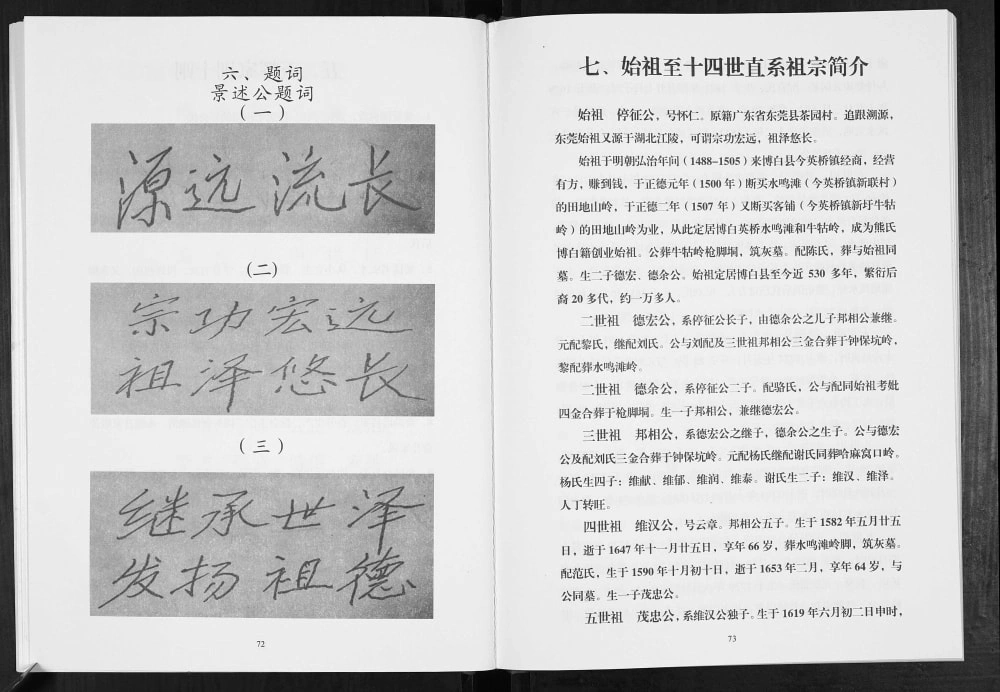 六、题词
景述公题词
(一)
源远流长
(二)
宗功宏远
祖泽悠长
(三)
继承世泽
发扬祖德
72
七、始祖至十四世直系祖宗简介
始祖 停征公，号怀仁。原籍广东省东莞县茶园村。追跟溯源，
东莞始祖又源于湖北江陵，可谓宗功宏远，祖泽悠长。
始祖于明朝弘治年间（1488-1505）来博白县今英桥镇经商，经营
有方，赚到钱，于正德元年（1500 年）断买水鸣滩（今英桥镇新联村）
的田地山岭，于正德二年（1507 年）又断买客铺（今英桥镇新圩牛牯
岭）的田地山岭为业，从此定居博白英桥水鸣滩和牛牯岭，成为熊氏
博白籍创业始祖。公葬牛牯岭枪脚垌，筑灰墓。配陈氏，葬与始祖同
墓。生二子德宏、德余公。始祖定居博白县至今近 530 多年，繁衍后
裔 20 多代，约一万多人。
二世祖 德宏公，系停征公长子，由德余公之儿子邦相公兼继。
元配黎氏，继配刘氏。公与刘配及三世祖邦相公三金合葬于钟保坑岭，
黎配葬水鸣滩岭。
二世祖 德余公，系停征公二子。配骆氏，公与配同始祖考妣
四金合葬于枪脚垌。生一子邦相公，兼继德宏公。
三世祖 邦相公，系德宏公之继子，德余公之生子。公与德宏
公及配刘氏三金合葬于钟保坑岭。元配杨氏继配谢氏同葬哈麻窝口岭。
杨氏生四子：维献、维郁、维润、维泰。谢氏生二子：维汉、维泽。
人丁转旺。
四世祖 维汉公，号云章。邦相公五子。生于 1582 年五月廿五
日，逝于 1647 年十一月廿五日，享年 66 岁，葬水鸣滩岭脚，筑灰墓。
配范氏，生于 1590 年十月初十日，逝于 1653 年二月，享年 64 岁，与
公同墓。生一子茂忠公。
五世祖 茂忠公，系维汉公独子。生于 1619 年六月初二日申时，
73